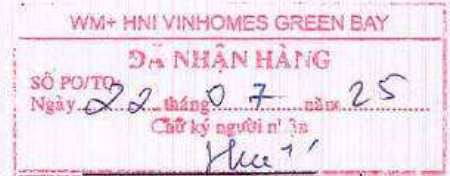 WM+ HNI VINHOMES GREEN BAY
ĐÃ NHẬN HÀNG
SỐ PO/TO:
Ngày 22 tháng 07 năm 25
Chữ ký người nhận